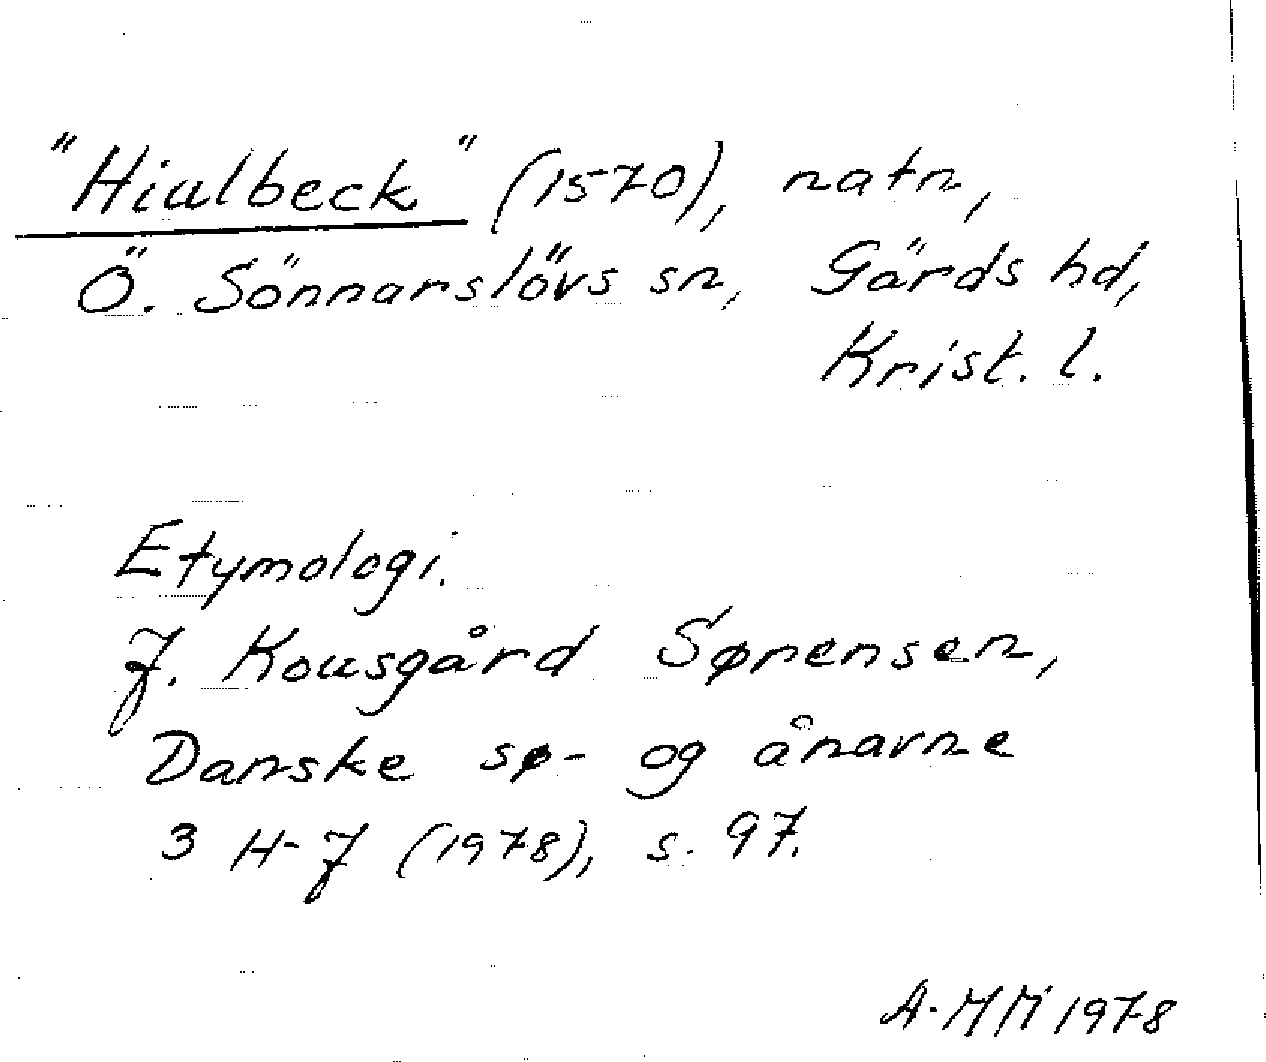 "Hiulbeck" (1570), natn,
Ö. Sönnarslövs sn, Gärds hd,
Krist. l.
Etymologi.
J. Kousgård Sørensen,
Danske sø- og ånavne
3 H-J (1978), s. 97.
A-MM 1978